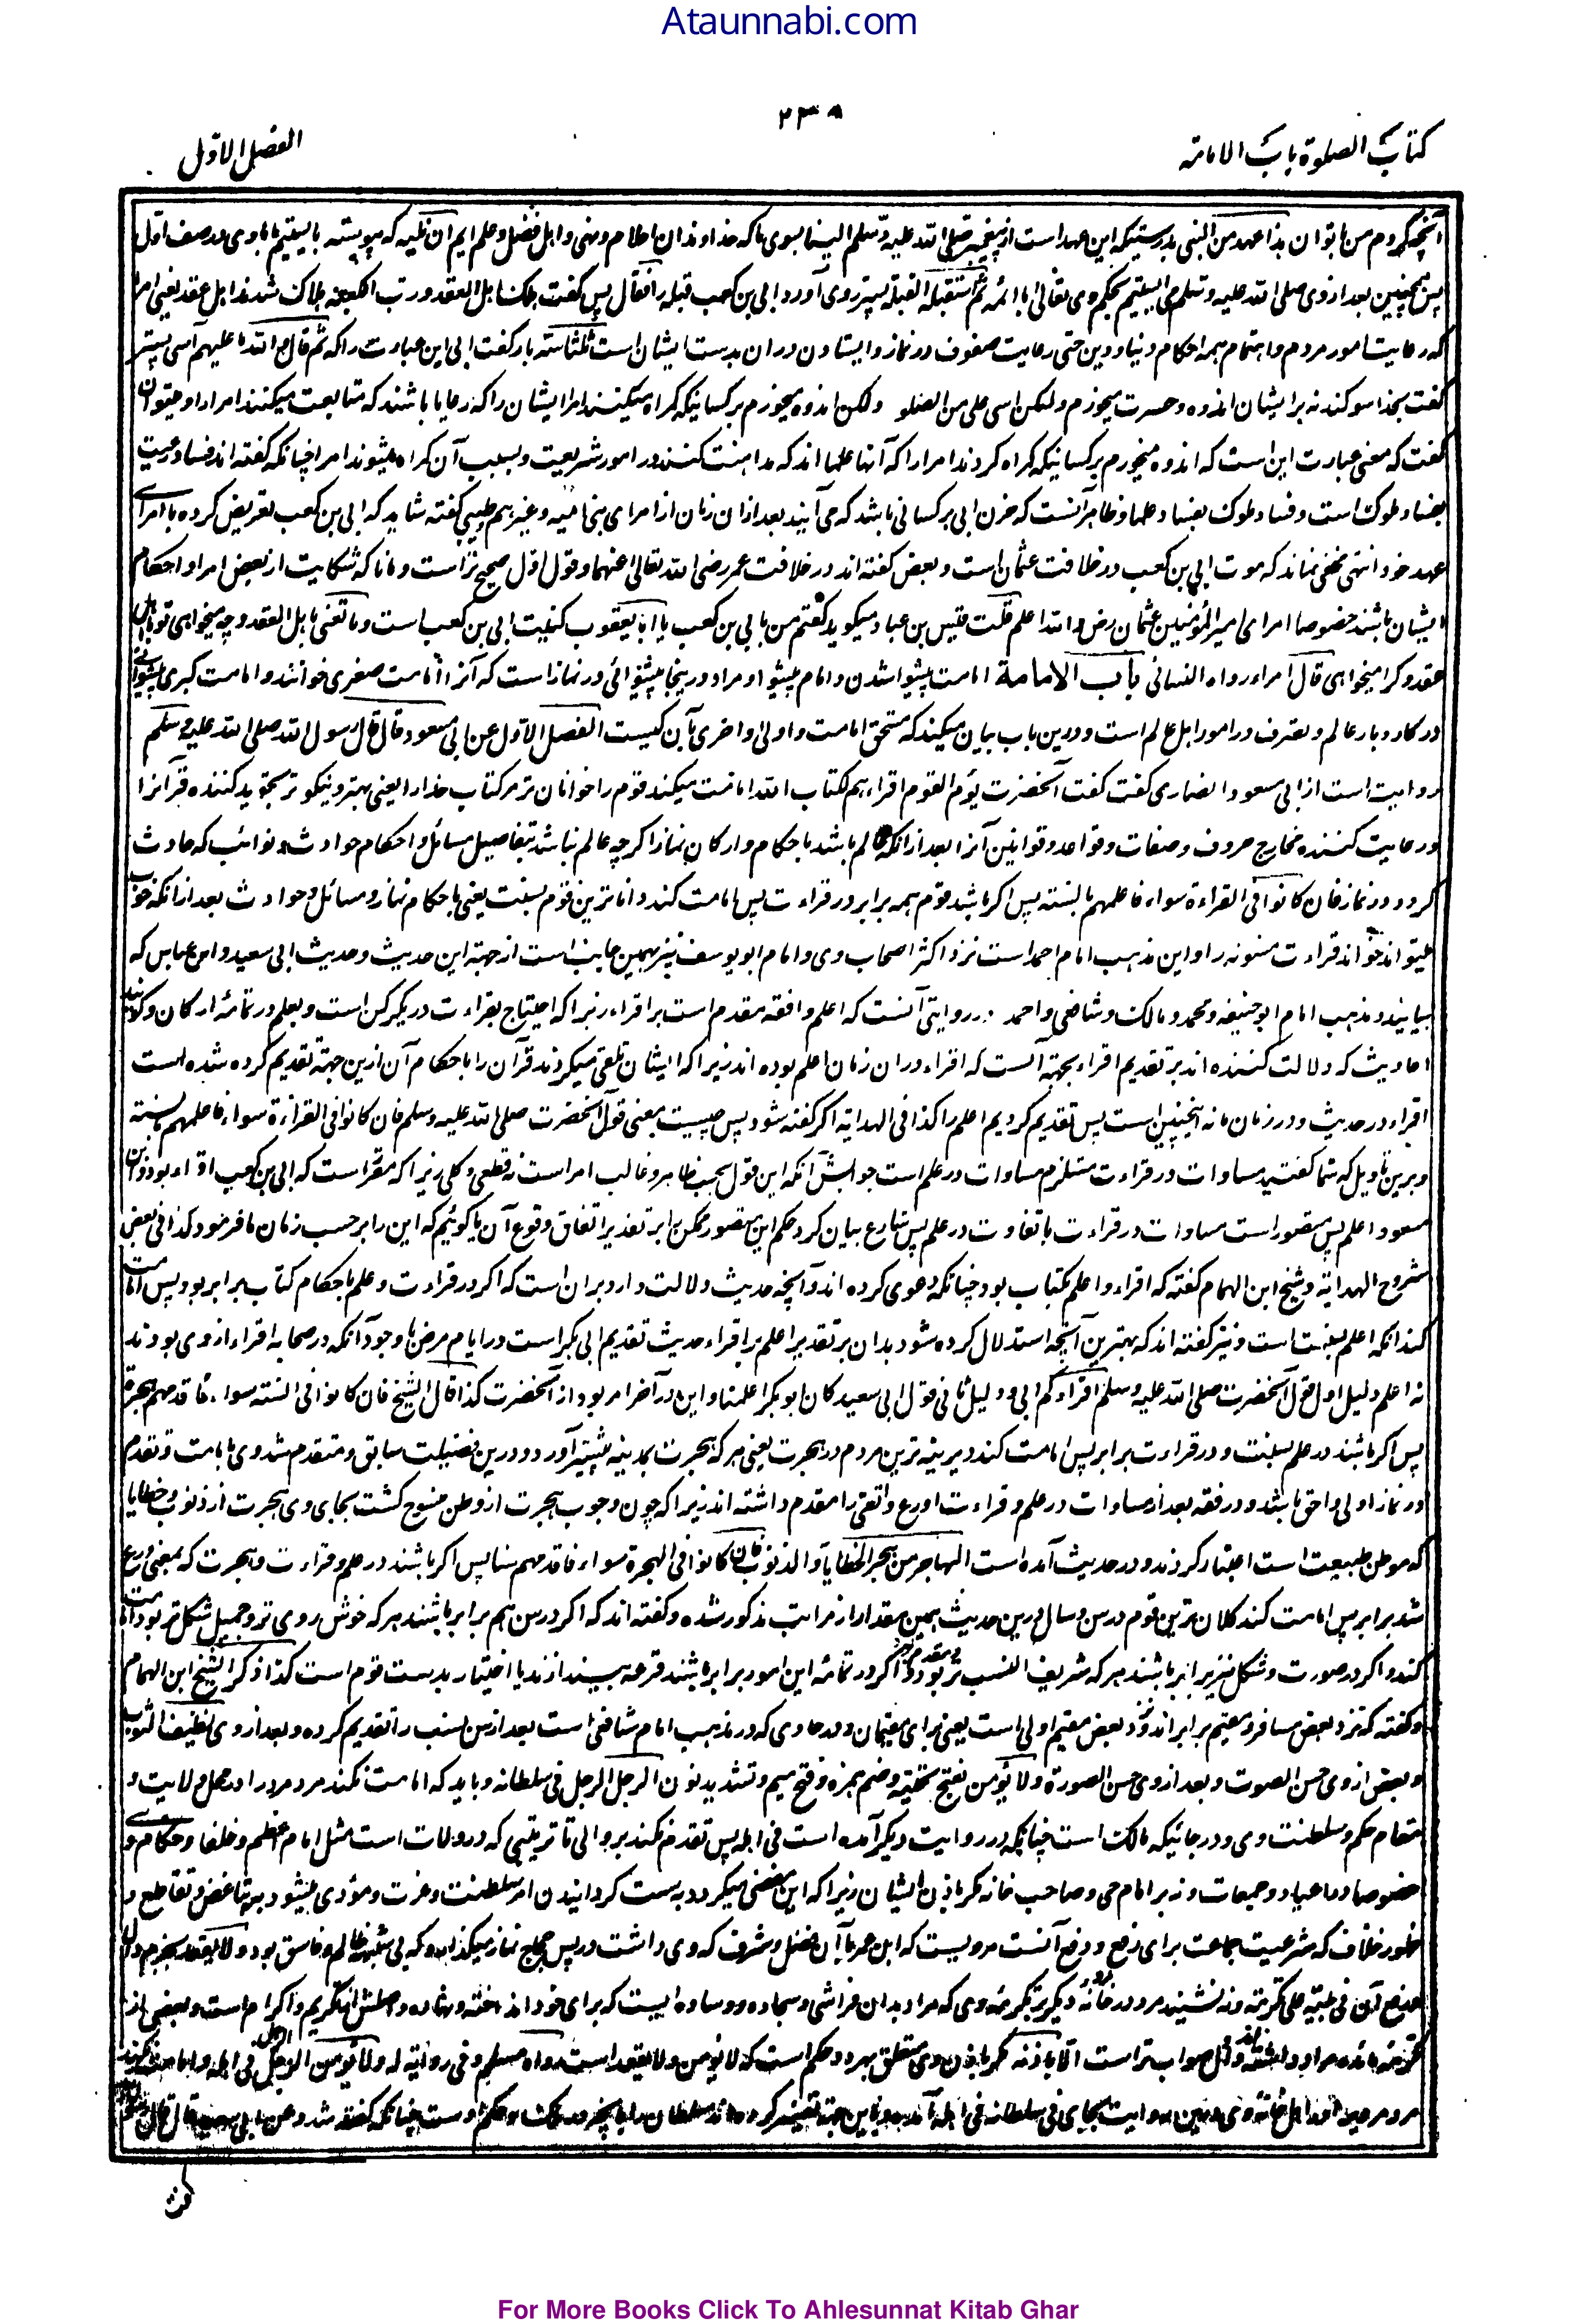 Ataunnabi.com
۲۳۸
کتاب الصلوة باب الامامة
الفصل الاول
آنچه کردم من با تو ان هذا عهد من النبی بدرستیکه این عهد است از پیغمبر صلی الله علیه وسلم الینا بسوی ما که خداوندان احلام و نهی و اهل فضل و علم ایم ان نلیه که پیوسته بایستیم با وی در صف اول
پس همچنین بعد از وی صلی الله علیه وسلم می ایستیم بحکم وی تعالی با ائمه ثم استقبل القبلة پستر روی آورد ابی بن کعب قبله را فقال پس گفت هلک اهل العقد ورب الکعبة هلاک شدند اهل عقد یعنی امرا
که رعایت امور مردم و اهتمام بهمه احکام دنیا و دین حتی رعایت صفوف در نماز و ایستادن در ان بدست ایشان است ثلثا سه بار گفت ابی این عبارت را که ثم قال و الله ما علیهم آسی پستر
گفت بخدا سوگند نه بر ایشان اندوه و حسرت میخورم ولکن اسی علی من اضلوا ولکن اندوه میخورم بر کسانیکه گمراه میکنند امرا ایشان را که رعایا باشند که متابعت میکنند امرا را و میتوان
گفت که معنی عبارت این است که اندوه میخورم بر کسانیکه گمراه کردند امرا را که آنها علما اند که مداهنت کنند در امور شریعت و بسبب آن گمراه میشوند امرا چنانکه گفته اند فساد رعیت
بفساد ملوک است و فساد ملوک بفساد علما و ظاهر آنست که حزن ابی بر کسانی باشد که می آیند بعد از ان زمان از امرای بنی امیه و غیرهم طیبی گفته شاید که ابی بن کعب تعریض کرده با امرای
عهد خود انتهی مخفی نماند که موت ابی بن کعب در خلافت عثمان است و بعض گفته اند در خلافت عمر رضی الله تعالی عنهما و قول اول صحیح تر است و مانا که شکایت از بعض امرا و احکام
ایشان باشد خصوصا امرای امیر المؤمنین عثمان رض والله اعلم قلت قیس بن عباد میگوید گفتم من بابی بن کعب یا ابا یعقوب کنیت ابی بن کعب است و ما تعنی باهل العقد و چه میخواهی تو باهل
عقد و کرا میخواهی قال امراء رواه النسائی باب الامامة امامت پیشوا شدن و امام پیشوا و مراد در ینجا پیشوائی در نماز است که آنرا امامت صغری خوانند و امامت کبری پیشوائی
در کار و بار عالم و تصرف در امور اهل عالم است و درین باب بیان میکند که مستحق امامت و اولی و احری بآن کیست الفصل الاول عن ابی مسعود قال قال رسول الله صلی الله علیه وسلم
روایت است از ابی مسعود انصاری گفت گفت آنحضرت یؤم القوم اقراءهم لکتاب الله امامت میکند قوم را خوانان تر مر کتاب خدا را یعنی بهتر و نیکوتر تجوید کننده قرآنرا
و رعایت کننده مخارج حروف و صفات و قواعد و قوانین آنرا بعد از انکه عالم باشد باحکام و ارکان نماز اگرچه عالم نباشد بتفاصیل مسائل و احکام حوادث و نوائب که حادث
گردد در نماز فان کانوا فی القراءة سواء فاعلمهم بالسنة پس اگر باشد قوم همه برابر در قراءت پس امامت کند داناترین قوم بسنت یعنی باحکام نماز و مسائل و حوادث بعد از انکه خوب
میتواند خواند قراءت مسنونه را و این مذهب امام احمد است نزد اکثر اصحاب وی و امام ابو یوسف نیز بهمین جانب است از جهة این حدیث و حدیث ابی سعید و ابن عباس که
بیایند و مذهب امام ابو حنیفه و محمد و مالک و شافعی و احمد در روایتی آنست که اعلم و افقه مقدم است بر اقراء زیرا که احتیاج بقراءت در یک رکن است و بعلم در تمامه ارکان و
احادیث که دلالت کننده اند بر تقدیم اقراء بجهة آنست که اقراء در ان زمان اعلم بوده اند زیرا که ایشان تلقی میکردند قرآن را باحکام آن ازین جهة تقدیم کرده شده است
اقراء در حدیث و در زمان ما نه اینچنین است پس تقدیم کردیم اعلم را کذا فی الهدایة اگر گفته شود پس چیست معنی قول آنحضرت صلی الله علیه وسلم فان کانوا فی القراءة سواء فاعلمهم بالسنة
و برین تاویل که شما گفتید مساوات در قراءت مستلزم مساوات در علم است جوابش آنکه این قول بحسب ظاهر و غالب امر است نه قطعی و کلی زیرا که مقرر است که ابی بن کعب اقراء بود و ابن
مسعود اعلم پس متصور است مساوات در قراءت با تفاوت در علم پس شارع بیان کرد حکم این متصور ممکن را بر تقدیر اتفاق وقوع آن یا گوئیم که این را بر حسب زمان ما فرمود کذا فی بعض
شروح الهدایة و شیخ ابن الهمام گفته که اقراء و اعلم بکتاب بود چنانکه دعوی کرده اند و آنچه حدیث دلالت دارد بران است که اگر در قراءت و علم باحکام کتاب برابر بود پس امامت
کند انکه اعلم بسنت است و نیز گفته اند که بهترین آنچه استدلال کرده شود بدان بر تقدیر اعلم بر اقراء حدیث تقدیم ابی بکر است در ایام مرض با وجود آنکه در صحابه اقراء از وی بودند
نه اعلم دلیل اول قول آنحضرت صلی الله علیه وسلم اقراءکم ابی و دلیل ثانی قول ابی سعید کان ابو بکر اعلمنا و این در آخر امر بود از آنحضرت کذا قال الشیخ فان کانوا فی السنة سواء فاقدمهم هجرة
پس اگر باشند در علم بسنت و در قراءت برابر پس امامت کند دیرینه ترین مردم در هجرت یعنی هر که هجرت بمدینه پیشتر آورد و درین فضیلت سابق و متقدم شد وی بامامت و تقدم
در نماز اولی و احق باشد و در فقه بعد از مساوات در علم و قراءت اورع و اتقی را مقدم داشته اند زیرا که چون وجوب هجرت از وطن منسوخ گشت بجای وی هجرت از ذنوب و خطایا
که موطن طبیعت است اعتبار کردند و در حدیث آمده است المهاجر من هجر الخطایا و الذنوب فان کانوا فی الهجرة سواء فاقدمهم سنا پس اگر باشند در علم و قراءت و هجرت که بمعنی ورع
شد برابر پس امامت کند کلان ترین قوم در سن و سال و درین حدیث همین مقدار از مراتب مذکور شده و گفته اند که اگر در سن هم برابر باشند هر که خوش روی تر و جمیل شکل تر بود امامت
کند و اگر در صورت و شکل نیز برابر باشند هر که شریف النسب تر بود و اگر در تمامه این امور برابر باشند قرعه بیندازند یا اختیار بدست قوم است کذا ذکر الشیخ ابن الهمام
و گفته که نزد بعض مسافر و مقیم برابر اند و نزد بعض مقیم اولی است یعنی برای مقیمان و در حاوی که در مذهب امام شافعی است بعد از سن نسب را تقدیم کرده و بعد از وی نظیف الثوب
و بعض از وی حسن الصوت و بعد از وی حسن الصورة ولا یؤمن بفتح تحتیه و ضم همزه و فتح میم و تشدید نون الرجل الرجل فی سلطانه و باید که امامت نکند مرد مرد را در محل ولایت و
مقام حکم و سلطنت وی و در جائیکه مالک است چنانکه در روایت دیگر آمده است فی اهله پس تقدم نکند بر والی تا ترتیبی که در ولات است مثل امام اعظم و خلفا و حکام و
خصوصا در اعیاد و جمعات و نه بر امام حی و صاحب خانه مگر باذن ایشان زیرا که این مفضی میگردد به سست گردانیدن امر سلطنت و عزت و مؤدی میشود به تباغض و تقاطع و
ظهور خلاف که شرعیت جماعت برای رفع و دفع آنست مرویست که ابن عمر با آن فضل و شرف که وی داشت در پس حجاج نماز میگذارد که بی شبه ظالم و فاسق بود ولا یقعد
فی بیته علی تکرمته و نه نشیند مرد در خانه دیگر بر تکرمه وی که مراد بدان فراش و سجاده و وساده ایست که برای خود انداخته و نهاده و اصلش از تکریم و اکرام است و بعضی از
تکرمه مائده مراد داشته اند و اول صواب تر است الا باذنه مگر باذن وی متعلق بهر دو حکم است که لا یؤمن ولا یقعد است رواه مسلم و فی روایة له ولا یؤمن الرجل الرجل فی اهله
For More Books Click To Ahlesunnat Kitab Ghar